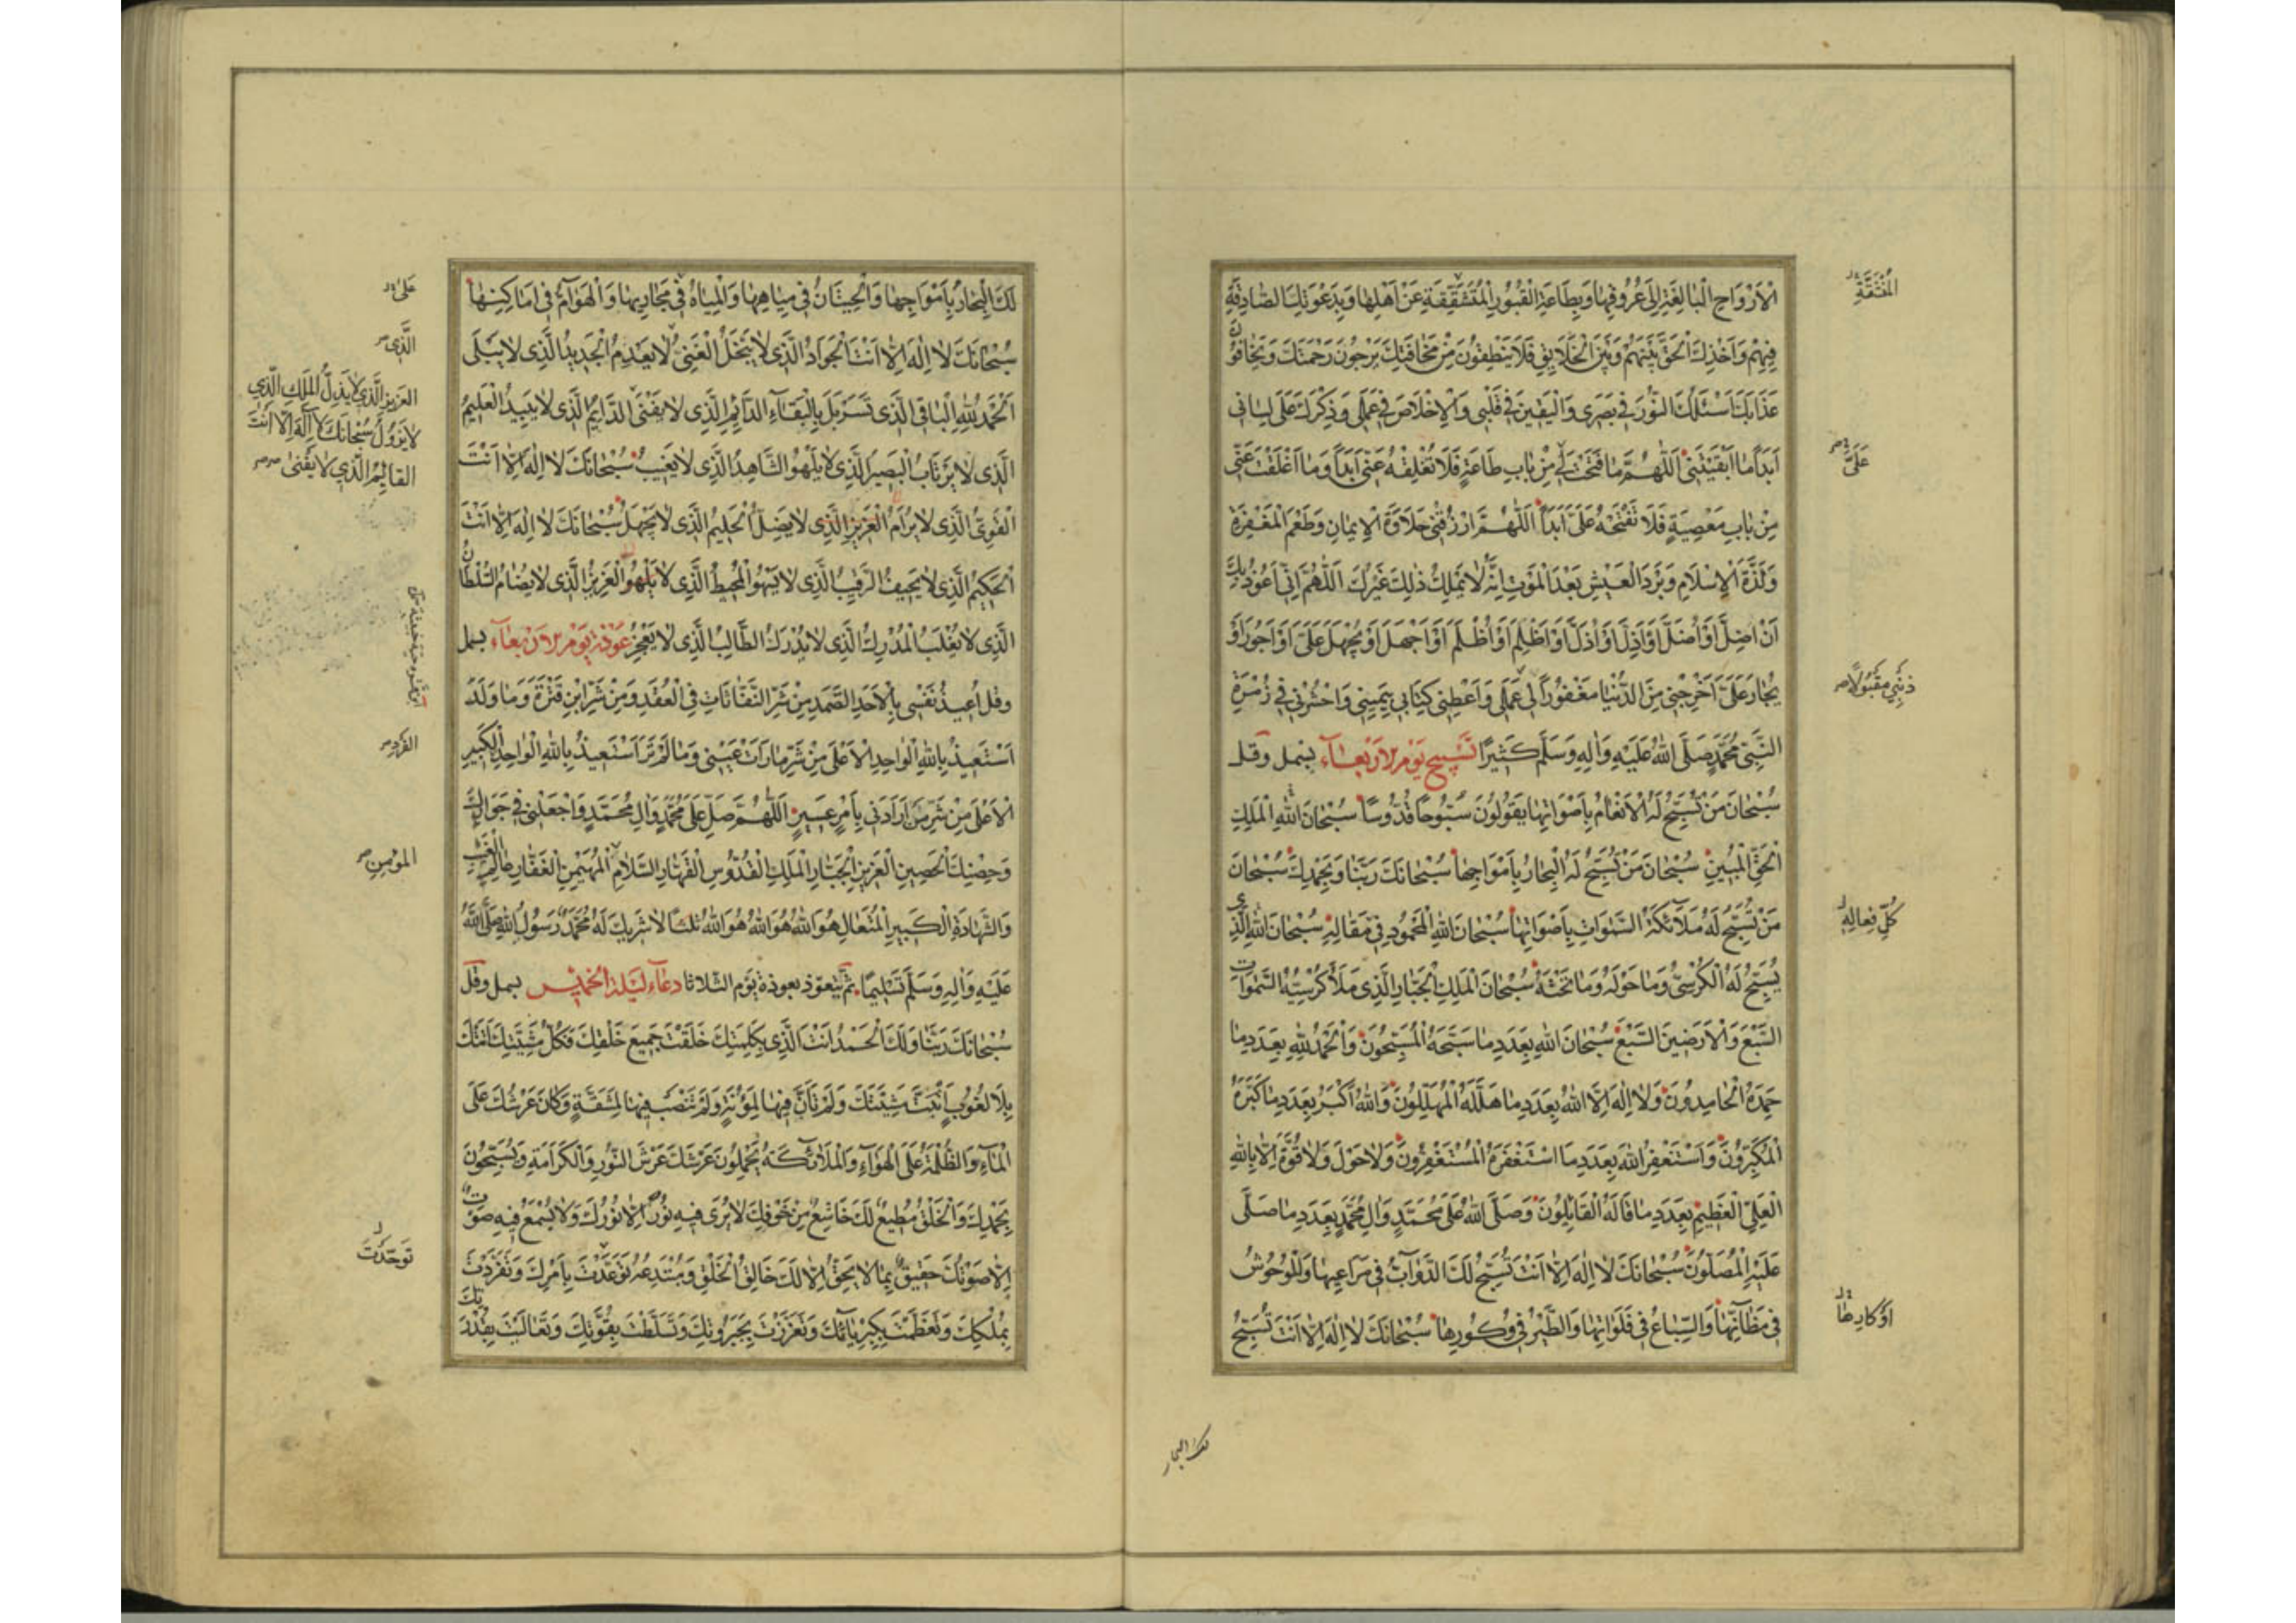 الْاَرْوَاحِ الْبَالِغَةِ اِلَى عُرُوقِهَا وَبِطَاعَةِ الْقُبُورِ الْمُتَشَقِّقَةِ عَنْ اَهْلِهَا وَبِدَعْوَتِكَ الصَّادِقَةِ
فِيهِمْ وَاَخْذِكَ الْحَقَّ بَيْنَهُمْ وَبَيْنَ الْخَلَايِقِ فَلَا يَنْطِقُونَ مِنْ مَخَافَتِكَ يَرْجُونَ رَحْمَتَكَ وَيَخَافُونَ
عَذَابَكَ اَسْئَلُكَ النُّورَ فِي بَصَرِي وَالْيَقِينَ فِي قَلْبِي وَالْاِخْلَاصَ فِي عَمَلِي وَذِكْرَكَ عَلَى لِسَانِي
اَبَدًا مَا اَبْقَيْتَنِي اَللّٰهُمَّ مَا فَتَحْتَ لِي مِنْ بَابِ طَاعَةٍ فَلَا تُغْلِقْهُ عَنِّي اَبَدًا وَمَا اَغْلَقْتَ عَنِّي
مِنْ بَابِ مَعْصِيَةٍ فَلَا تَفْتَحْهُ عَلَيَّ اَبَدًا اَللّٰهُمَّ ارْزُقْنِي حَلَاوَةَ الْاِيمَانِ وَطَعْمَ الْمَغْفِرَةِ
وَلَذَّةَ الْاِسْلَامِ وَبَرْدَ الْعَيْشِ بَعْدَ الْمَوْتِ اِنَّهُ لَا يَمْلِكُ ذٰلِكَ غَيْرُكَ اَللّٰهُمَّ اِنِّي اَعُوذُ بِكَ
اَنْ اَضِلَّ اَوْ اُضَلَّ اَوْ اَذِلَّ اَوْ اُذَلَّ اَوْ اَظْلِمَ اَوْ اُظْلَمَ اَوْ اَجْهَلَ اَوْ يُجْهَلَ عَلَيَّ اَوْ اَجُورَ اَوْ
يُجَارَ عَلَيَّ اَخْرِجْنِي مِنَ الدُّنْيَا مَغْفُورًا لِي عَمَلِي وَاَعْطِنِي كِتَابِي بِيَمِينِي وَاحْشُرْنِي فِي زُمْرَةِ
النَّبِيِّ مُحَمَّدٍ صَلَّى اللّٰهُ عَلَيْهِ وَاٰلِهِ وَسَلَّمَ كَثِيرًا تَسْبِيحِ يَوْمِ الْاَرْبِعَاءِ بسمل وقل
سُبْحَانَ مَنْ تُسَبِّحُ لَهُ الْاَنْعَامُ بِاَصْوَاتِهَا يَقُولُونَ سُبُّوحًا قُدُّوسًا سُبْحَانَ اللّٰهِ الْمَلِكِ
الْحَقِّ الْمُبِينِ سُبْحَانَ مَنْ تُسَبِّحُ لَهُ الْبِحَارُ بِاَمْوَاجِهَا سُبْحَانَكَ رَبَّنَا وَبِحَمْدِكَ سُبْحَانَ
مَنْ تُسَبِّحُ لَهُ مَلَائِكَةُ السَّمٰوَاتِ بِاَصْوَاتِهَا سُبْحَانَ اللّٰهِ الْمَحْمُودِ فِي مَقَالِهِ سُبْحَانَ اللّٰهِ الَّذِي
يُسَبِّحُ لَهُ الْكُرْسِيُّ وَمَا حَوْلَهُ وَمَا تَحْتَهُ سُبْحَانَ الْمَلِكِ الْجَبَّارِ الَّذِي مَلَأَ كُرْسِيُّهُ السَّمٰوَاتِ
السَّبْعَ وَالْاَرَضِينَ السَّبْعَ سُبْحَانَ اللّٰهِ بِعَدَدِ مَا سَبَّحَهُ الْمُسَبِّحُونَ وَالْحَمْدُ لِلّٰهِ بِعَدَدِ مَا
حَمِدَهُ الْحَامِدُونَ وَلَا اِلٰهَ اِلَّا اللّٰهُ بِعَدَدِ مَا هَلَّلَهُ الْمُهَلِّلُونَ وَاللّٰهُ اَكْبَرُ بِعَدَدِ مَا كَبَّرَهُ
الْمُكَبِّرُونَ وَاَسْتَغْفِرُ اللّٰهَ بِعَدَدِ مَا اسْتَغْفَرَهُ الْمُسْتَغْفِرُونَ وَلَا حَوْلَ وَلَا قُوَّةَ اِلَّا بِاللّٰهِ
الْعَلِيِّ الْعَظِيمِ بِعَدَدِ مَا قَالَهُ الْقَائِلُونَ وَصَلَّى اللّٰهُ عَلَى مُحَمَّدٍ وَاٰلِ مُحَمَّدٍ بِعَدَدِ مَا صَلَّى
عَلَيْهِ الْمُصَلُّونَ سُبْحَانَكَ لَا اِلٰهَ اِلَّا اَنْتَ تُسَبِّحُ لَكَ الدَّوَابُّ فِي مَرَاعِيهَا وَالْوُحُوشُ
فِي مَظَانِّهَا وَالسِّبَاعُ فِي فَلَوَاتِهَا وَالطَّيْرُ فِي وُكُورِهَا سُبْحَانَكَ لَا اِلٰهَ اِلَّا اَنْتَ تُسَبِّحُ
عَلَيَّ
ذنبي مقبولًا
كُلِّ فِعَالِهِ
اَوْكَارِهَا
لك البحار
لَكَ الْبِحَارُ بِاَمْوَاجِهَا وَالْحِيتَانُ فِي مِيَاهِهَا وَالْمِيَاهُ فِي مَجَارِيهَا وَالْهَوَامُّ فِي اَمَاكِنِهَا
سُبْحَانَكَ لَا اِلٰهَ اِلَّا اَنْتَ الْجَوَادُ الَّذِي لَا يَبْخَلُ الْغَنِيُّ لَا يُعْدِمُ الْجَدِيدُ الَّذِي لَا يَبْلَى
اَلْحَمْدُ لِلّٰهِ الْبَاقِي الَّذِي تَسَرْبَلَ بِالْبَقَاءِ الدَّائِمِ الَّذِي لَا يَفْنَى الدَّائِمُ الَّذِي لَا يَبِيدُ الْعَلِيمُ
الَّذِي لَا يَرْتَابُ الْبَصِيرُ الَّذِي لَا يَلْهُو الشَّاهِدُ الَّذِي لَا يَغِيبُ سُبْحَانَكَ لَا اِلٰهَ اِلَّا اَنْتَ
الْقَوِيُّ الَّذِي لَا يُرَامُ الْعَزِيزُ الَّذِي لَا يَضِلُّ الْحَلِيمُ الَّذِي لَا يَجْهَلُ سُبْحَانَكَ لَا اِلٰهَ اِلَّا اَنْتَ
الْحَكِيمُ الَّذِي لَا يَحِيفُ الرَّقِيبُ الَّذِي لَا يَسْهُو الْمُحِيطُ الَّذِي لَا يَلْهُو الْعَزِيزُ الَّذِي لَا يُضَامُ السُّلْطَانُ
الَّذِي لَا يُغْلَبُ الْمُدْرِكُ الَّذِي لَا يُدْرَكُ الطَّالِبُ الَّذِي لَا يَعْجِزُ عَوْذَةِ يَوْمِ الْاَرْبِعَاءِ بسمل
وقل اُعِيذُ نَفْسِي بِالْاَحَدِ الصَّمَدِ مِنْ شَرِّ النَّفَّاثَاتِ فِي الْعُقَدِ وَمِنْ شَرِّ ابْنِ قَتْرَةَ وَمَا وَلَدَ
اَسْتَعِيذُ بِاللّٰهِ الْوَاحِدِ الْاَعْلَى مِنْ شَرِّ مَا رَاَتْ عَيْنِي وَمَا لَمْ تَرَ اَسْتَعِيذُ بِاللّٰهِ الْوَاحِدِ الْكَبِيرِ
الْاَعْلَى مِنْ شَرِّ مَنْ اَرَادَنِي بِاَمْرٍ عَسِيرٍ اَللّٰهُمَّ صَلِّ عَلَى مُحَمَّدٍ وَاٰلِ مُحَمَّدٍ وَاجْعَلْنِي فِي جِوَارِكَ
وَحِصْنِكَ الْحَصِينِ الْعَزِيزِ الْجَبَّارِ الْمَلِكِ الْقُدُّوسِ الْقَهَّارِ السَّلَامِ الْمُهَيْمِنِ الْغَفَّارِ عَالِمِ الْغَيْبِ
وَالشَّهَادَةِ الْكَبِيرِ الْمُتَعَالِ هُوَ اللّٰهُ هُوَ اللّٰهُ هُوَ اللّٰهُ ثلثًا لَا شَرِيكَ لَهُ مُحَمَّدٌ رَسُولُ اللّٰهِ صَلَّى اللّٰهُ
عَلَيْهِ وَاٰلِهِ وَسَلَّمَ تَسْلِيمًا ثُمَّ يتعوّذ بعوذة يَوْم الثلاثا دعاء ليلة الخميس بسمل وقل
سُبْحَانَكَ رَبَّنَا وَلَكَ الْحَمْدُ اَنْتَ الَّذِي بِكَلِمَتِكَ خَلَقْتَ جَمِيعَ خَلْقِكَ فَكُلُّ مَشِيَّتِكَ اَتَتْكَ
بِلَا لُغُوبٍ اَثْبَتَّ مَشِيَّتَكَ وَلَمْ تَأَنَّ فِيهَا لِمَؤُنَةٍ وَلَمْ تَنْصَبْ فِيهَا لِمَشَقَّةٍ وَكَانَ عَرْشُكَ عَلَى
الْمَاءِ وَالظُّلْمَةُ عَلَى الْهَوَاءِ وَالْمَلَائِكَةُ يَحْمِلُونَ عَرْشَكَ عَرْشَ النُّورِ وَالْكَرَامَةِ وَيُسَبِّحُونَ
بِحَمْدِكَ وَالْخَلْقُ مُطِيعٌ لَكَ خَاشِعٌ مِنْ خَوْفِكَ لَا يُرَى فِيهِ نُورٌ اِلَّا نُورُكَ وَلَا يُسْمَعُ فِيهِ صَوْتٌ
اِلَّا صَوْتُكَ حَقِيقٌ بِمَا لَا يَحِقُّ اِلَّا لَكَ خَالِقُ الْخَلْقِ وَمُبْتَدِعُهُ تَوَحَّدْتَ بِاَمْرِكَ وَتَفَرَّدْتَ
بِمُلْكِكَ وَتَعَظَّمْتَ بِكِبْرِيَائِكَ وَتَعَزَّزْتَ بِجَبَرُوتِكَ وَتَسَلَّطْتَ بِقُوَّتِكَ وَتَعَالَيْتَ بِقُدْرَتِكَ
عَلَى
الَّذِي
العزيز الَّذي لا يَذِلُّ الملك الَّذي
لا يَزُولُ سُبْحَانَكَ لا اِلٰهَ اِلَّا اَنْتَ
القائِمُ الَّذي لا يَفْنى
الفرد
المؤمِنِ
تَوَحَّدْتَ